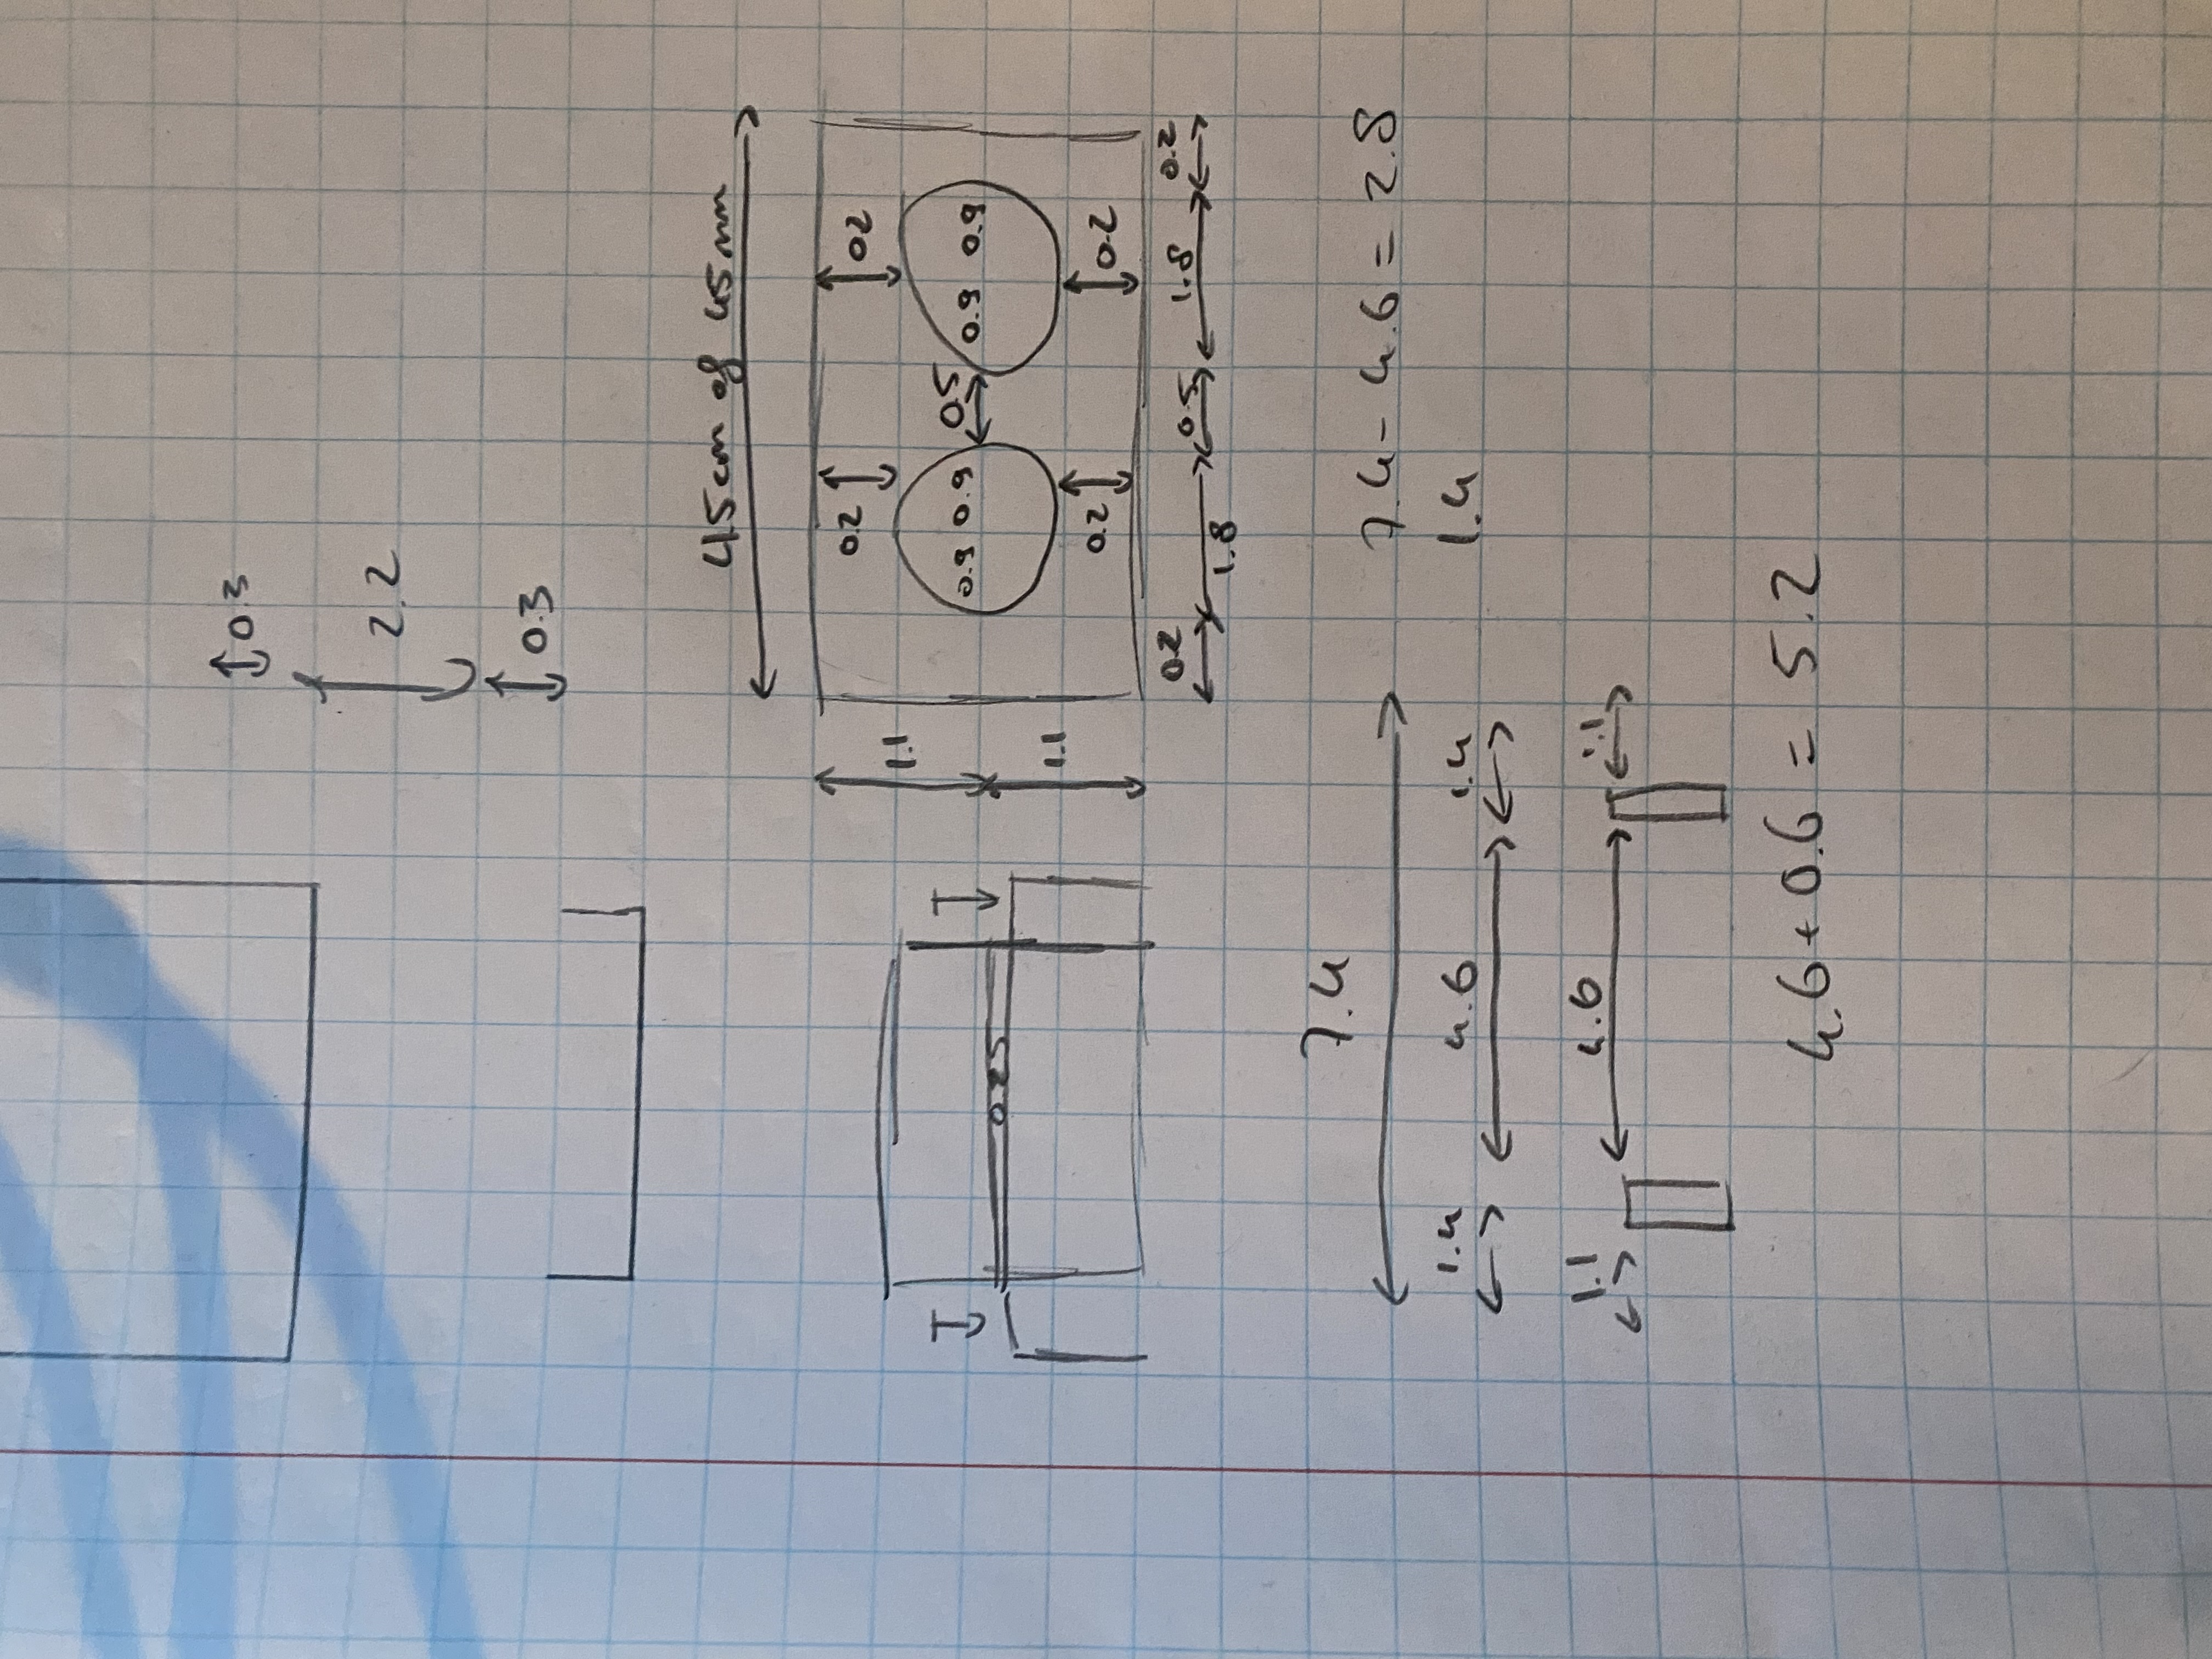 0.3
2.2
0.3
45cm of 45mm
0.2 02
1.1
0.9 0.9 0.5 0.9 0.9
0.25
1.1
0.2 0.2
0.2 1.8 0.5 1.8 0.2
7.4
7.4 - 4.6 = 2.8
1.4 4.6 1.4 1.4
1.1 4.6 1.1
4.6 + 0.6 = 5.2